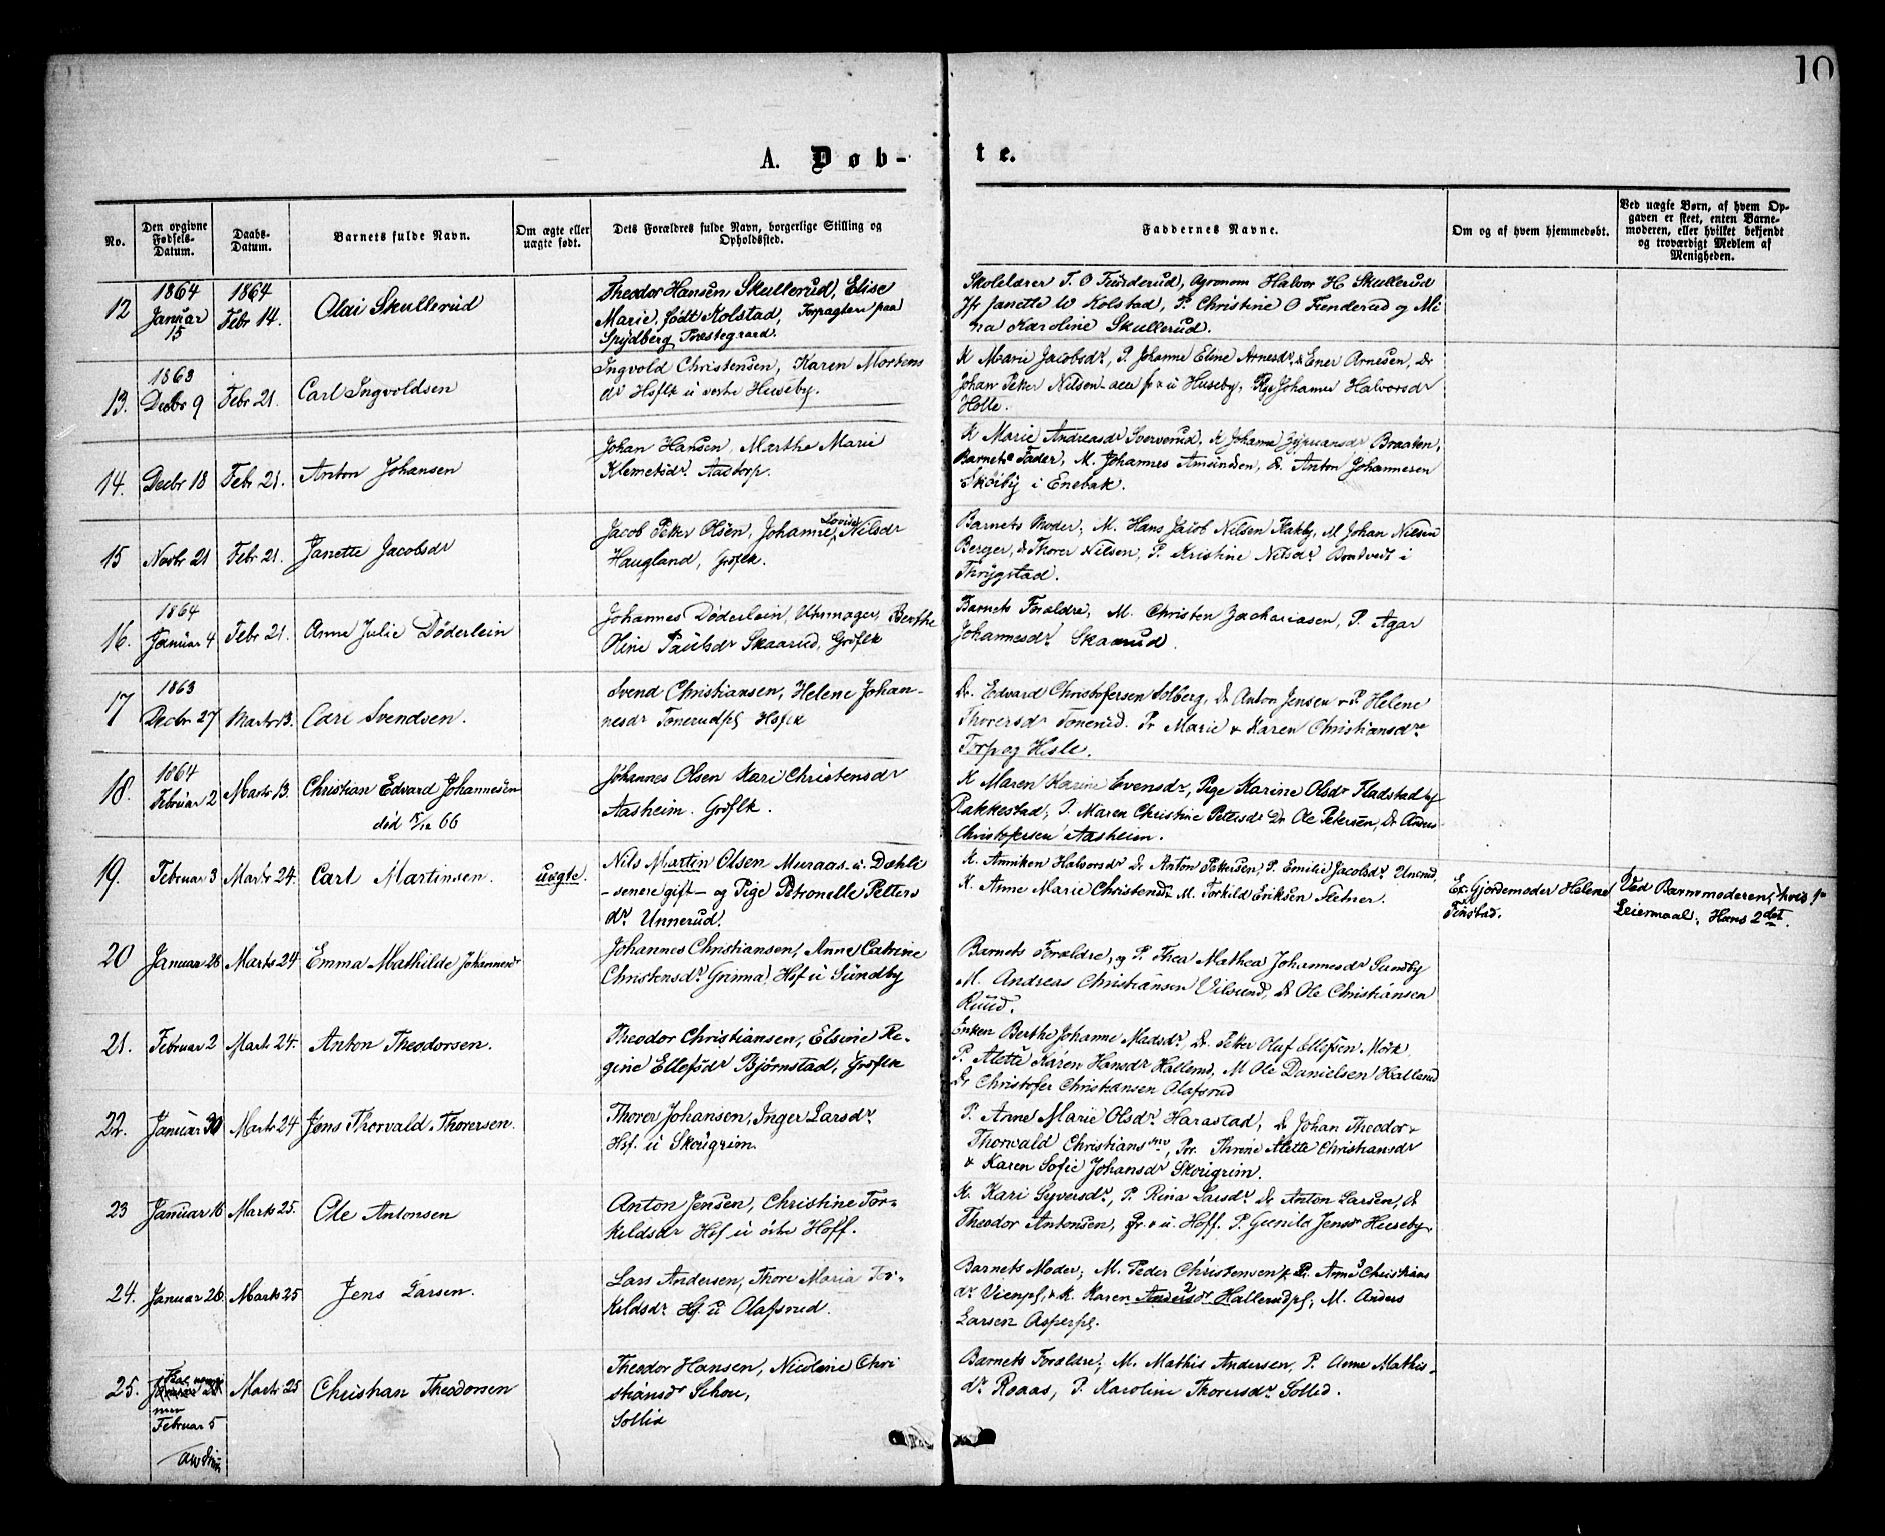 10
A. Døb-
te.
No.
Den orgivne Fødsels-Datum.
Daabs-Datum.
Barnets fulde Navn.
Om ægte eller uægte født.
Dets Forældres fulde Navn, borgerlige Stilling og Opholdssted.
Faddernes Navne.
Om og af hvem hjemmedøbt.
Ved uægte Børn, af hvem Op-
gaven er skeet, enten Barne-
moderen, eller hvilket bekjendt
og troværdigt Medlem af
Menigheden.
12
1864
Januar
15
1864
Febr 14.
Olai Skullerud
Theodor Hansen Skullerud, Elise
Marie, født Kolstad, Forpagtere paa
Spydberg Præstegaard.
Skolelærer T. O Funderud, Agronom Halvor H Skullerud
Jfr Janette W Kolstad, P. Christine O Funderud og Mi
na Karoline Skullerud.
13.
1863
Decbr 9
Febr 21.
Carl Ingvoldsen
Ingvold Christensen, Karen Mortens
dr Hsflk u vestre Huseby.
K Marie Jacobsdr, P. Johanne Eline Arnesdr, & Ener Arnesen, Dr
Johan Peter Nilsen u Huseby, Pige Johanne Halvorsdr
Holle.
14.
Decbr 18
Febr 21.
Anton Johansen
Johan Hansen, Marthe Marie
Klemetsdr Aastorp.
K Marie Andreasdr Sververud, K Johanne Braaten,
Barnets Fader, M. Johannes Amundsen, Dr. Anton Johannesen
Skøiby i Enebak.
15
Novbr 21
Febr 21.
Janette Jacobsdr
Jacob Peter Olsen, Johanne Lovise Nilsdr
Haugland, Grdflk.
Barnets Moder, M. Hans Jacob Nilsen Kakby, M Johan Nilsen
Berger, & Thorer Nilsen, P. Kristine Nilsdr Bondvedt i
Thrygstad.
16.
1864
Januar 4
Febr 21.
Anne Julie Døderlein
Johannes Døderlein, Uhrmager, Berthe
Oline Paulsdr Skaarud, Grdflk
Barnets Forældre, M. Christen Zachariasen, P. Agar
Johannesdr Skaarud.
17
1863
Decbr 27
Marts 13.
Carl Svendsen.
Svend Christiansen, Helene Johan-
nesdr Tonerudpl Hsflk
Dr. Edvard Christofersen Solberg, Dr Anton Jensen & P Helene
Thorersdr Tonerud. Pr Marie & Karen Christiansdre
Torp og Hisle.
18.
1864
Februar 2
Marts 13.
Christian Edvard Johannesen
død 5/12 66
Johannes Olsen Kari Christensdr
Aasheim. Grdflk.
K Maren Karine Evensdr, Pige Karine Olsdr Fladstad af
Rakkestad, P. Maren Christine Pettersdr Dr Ole Petersen, Dr Anders
Christofersen Aasheim.
19.
Februar 3
Marts 24.
Carl Martinsen.
uægte.
Nils Martin Olsen Muraas u Dæhli
-senere gift- og Pige Petronelle Petters
dr. Unnerud.
K. Anniken Halvorsdr Dr Anton Pettersen, P. Emilie Jacobsdr Unerud,
K. Anne Marie Christensdr M. Torkild Eriksen Fletner.
Ex. Gjordemoder Helene
Finstad.
Ved Barnemoderen, hvis 1ste
Leiermaal, Hans 2det.
20
Januar 28
Marts 24
Emma Mathilde Johannesdr
Johannes Christiansen, Anne Catrine
Christensdr Grima, Hsf u Sundby
Barnets Forældre, og P. Thea Mathea Johannesdr Sundby
M. Andreas Christiansen Vilsund, Dr Ole Christiansen
Ruud.
21.
Februar 2
Marts 24.
Anton Theodorsen.
Theodor Christiansen, Elsine Re-
gine Ellefsdr Bjørnstad, Grdflk
Enken Berthe Johanne Madsdr, Dr. Petter Oluf Ellefsen Mørk,
P. Alette Karen Hansdr Hallerud, M Ole Danielsen Hallerud
Dr Christofer Christiansen Olafsrud
22.
Januar 30
Marts 24
Jens Thorvald Thorersen.
Thorer Johansen, Inger Larsdr
Hsf. u Skougrim.
P. Anne Marie Olsdr Harastad, Dr Johan Theodor &
Thorvald Christians, Pr. Thrine Alette Christiansdr
& Karen Sofie Johansdr Skougrim.
23
Januar 16
Marts 25.
Ole Antonsen
Anton Jensen, Christine Tor-
kildsdr Hsf u østre Hoff.
K. Kari Syversdr, P. Rina Larsdr Dr Anton Larsen, Dr
Theodor Antonsen, Gr. & u. Hoff. P. Gunild Jensdr Huseby.
24.
Januar 26.
Marts 25
Jens Larsen.
Lars Andersen, Thore Maria Tor-
kildsdr Hsf u Olafsrud.
Barnets Moder, M. Peder Christensen & P. Anne Christians
dr Vienpl, & K. Karen Andersdr Hallerudpl, M. Anders
Larsen Asperpl.
25.
Januar 28
Februar 5
Marts 25
Christian Theodorsen
Theodor Hansen, Nicoline Chri
stiansdr Schou,
Sollid
Barnets Forældre, M. Mathis Andersen, P. Anne Mathis-
dr Roaas, P. Karoline Thorersdr Sollid.